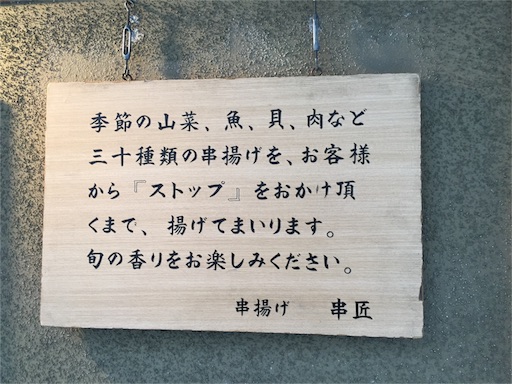 季節の山菜、魚、貝、肉など
三十種類の串揚げを、お客様
から『ストップ』をおかけ頂
くまで、揚げてまいります。
旬の香りをお楽しみください。
串揚げ 串匠